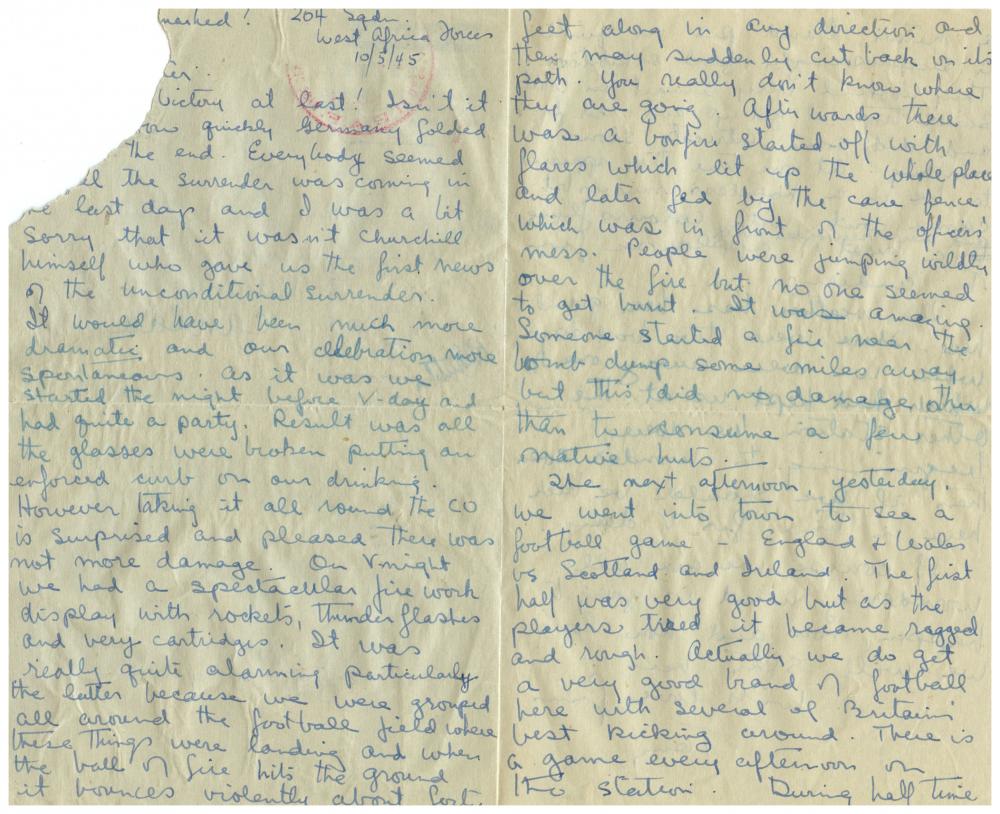 marked! 204 Sqdn.
West Africa Forces
10/5/45
Victory at last! Isn't it
how quickly Germany folded
the end. Everybody seemed
the surrender was coming in
last days and I was a bit
sorry that it wasn't Churchill
himself who gave us the first news
of the unconditional surrender.
It would have been much more
dramatic and our celebration more
spontaneous. As it was we
started the night before V-day and
had quite a party. Result was all
the glasses were broken putting an
enforced curb on our drinking.
However taking it all round, the CO
is surprised and pleased there was
not more damage. On V-night
we had a spectacular fire work
display with rockets, thunder flashes
and very cartridges. It was
really quite alarming particularly
the latter because we were grouped
all around the football field where
these things were landing and when
the ball of fire hits the ground
it bounces violently about
feet along in any direction and
then may suddenly cut back on its
path. You really don't know where
they are going. Afterwards there
was a bonfire started off with
flares which lit up the whole place
and later fed by the cane fence
which was in front of the officers'
mess. People were jumping wildly
over the fire but no one seemed
to get burnt. It was amazing.
Someone started a fire near the
bomb dump some miles away
but this did no damage other
than to consume a few
native huts.
The next afternoon, yesterday,
we went into town to see a
football game - England & Wales
vs Scotland and Ireland. The first
half was very good but as the
players tired it became ragged
and rough. Actually we do get
a very good brand of football
here with several of Britain's
best kicking around. There is
a game every afternoon on
the station. During half time